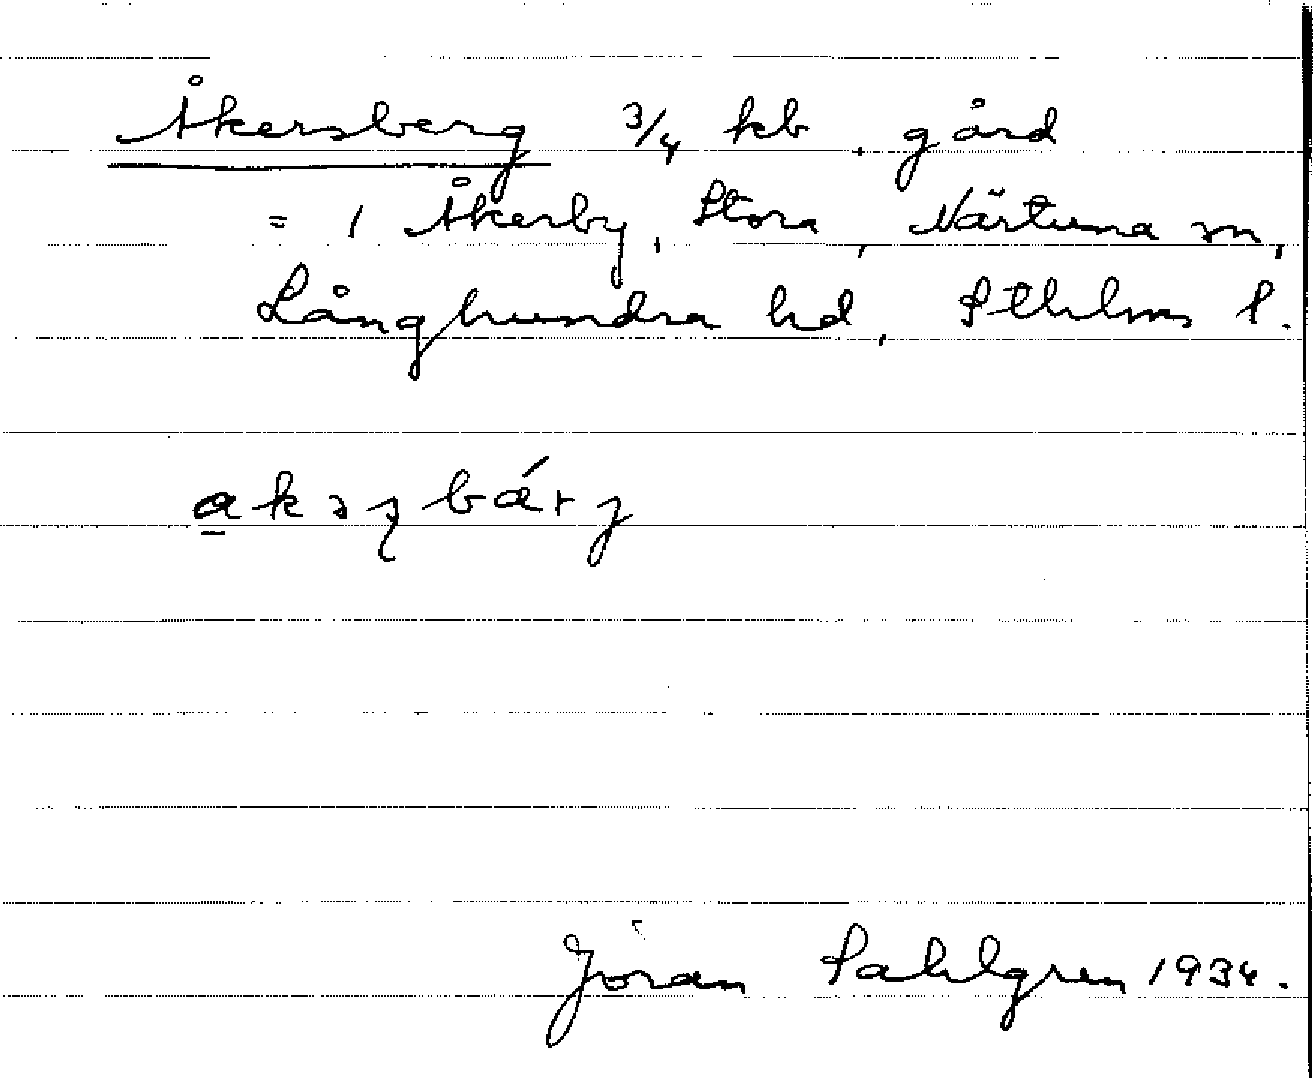 Åkersberg 3/4 kb, gård
= 1 Åkerby, Stora, Närtuna sn,
Långhundra hd, Sthlms l.
Jöran Sahlgren